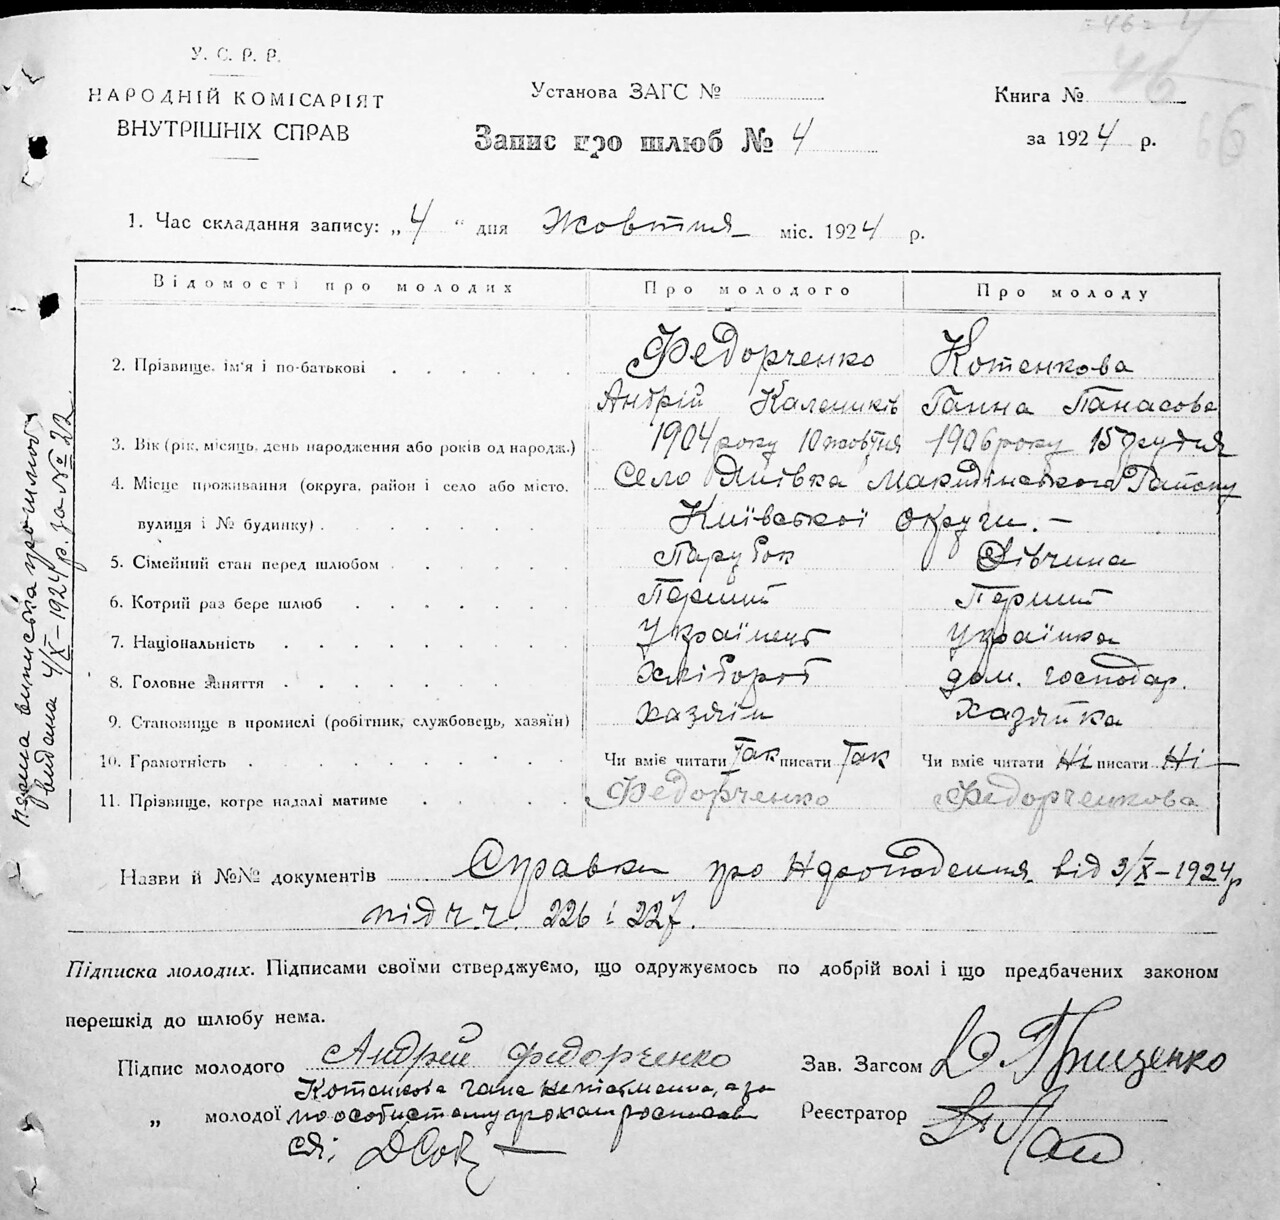 = 46 = 4
46
66
У. С. Р. Р.
НАРОДНІЙ КОМІСАРІЯТ
ВНУТРІШНІХ СПРАВ
Установа ЗАГС №
Книга №
Запис про шлюб № 4
за 1924 р.
1. Час складання запису: „4“ дня Жовтня міс. 1924 р.
Відомості про молодих Про молодого Про молоду
2. Прізвище, ім'я і по-батькові Федорченко Котенкова
Андрій Калеників Ганна Панасова
3. Вік (рік, місяць, день народження або років од народж.) 1904 року 10 жовтня 1906 року 15 грудня
4. Місце проживання (округа, район і село або місто, Село Липівка Макарівського Району
вулиця і № будинку) Київської округи. –
5. Сімейний стан перед шлюбом Парубок Дівчина
6. Котрий раз бере шлюб Перший Перший
7. Національність Українець Українка
8. Головне заняття Хлібороб дом. господар.
9. Становище в промислі (робітник, службовець, хазяїн) Хазяїн Хазяйка
10. Грамотність Чи вміє читати Так писати Так Чи вміє читати Ні писати Ні
11. Прізвище, котре надалі матиме Федорченко Федорченкова
Назви й №№ документів Справки про народження від 3/X–1924 р
під ч.ч. 226 і 227.
Підписка молодих. Підписами своїми стверджуємо, що одружуємось по добрій волі і що предбачених законом
перешкід до шлюбу нема.
Підпис молодого Андрей Федорченко
Зав. Загсом Гриценко
Котенкова Гана неписьменна, а за
„ молодої по особистому прохан росписав
Реєстратор
ся:
виписка про шлюб
видана 4/X–1924 р. за № 22